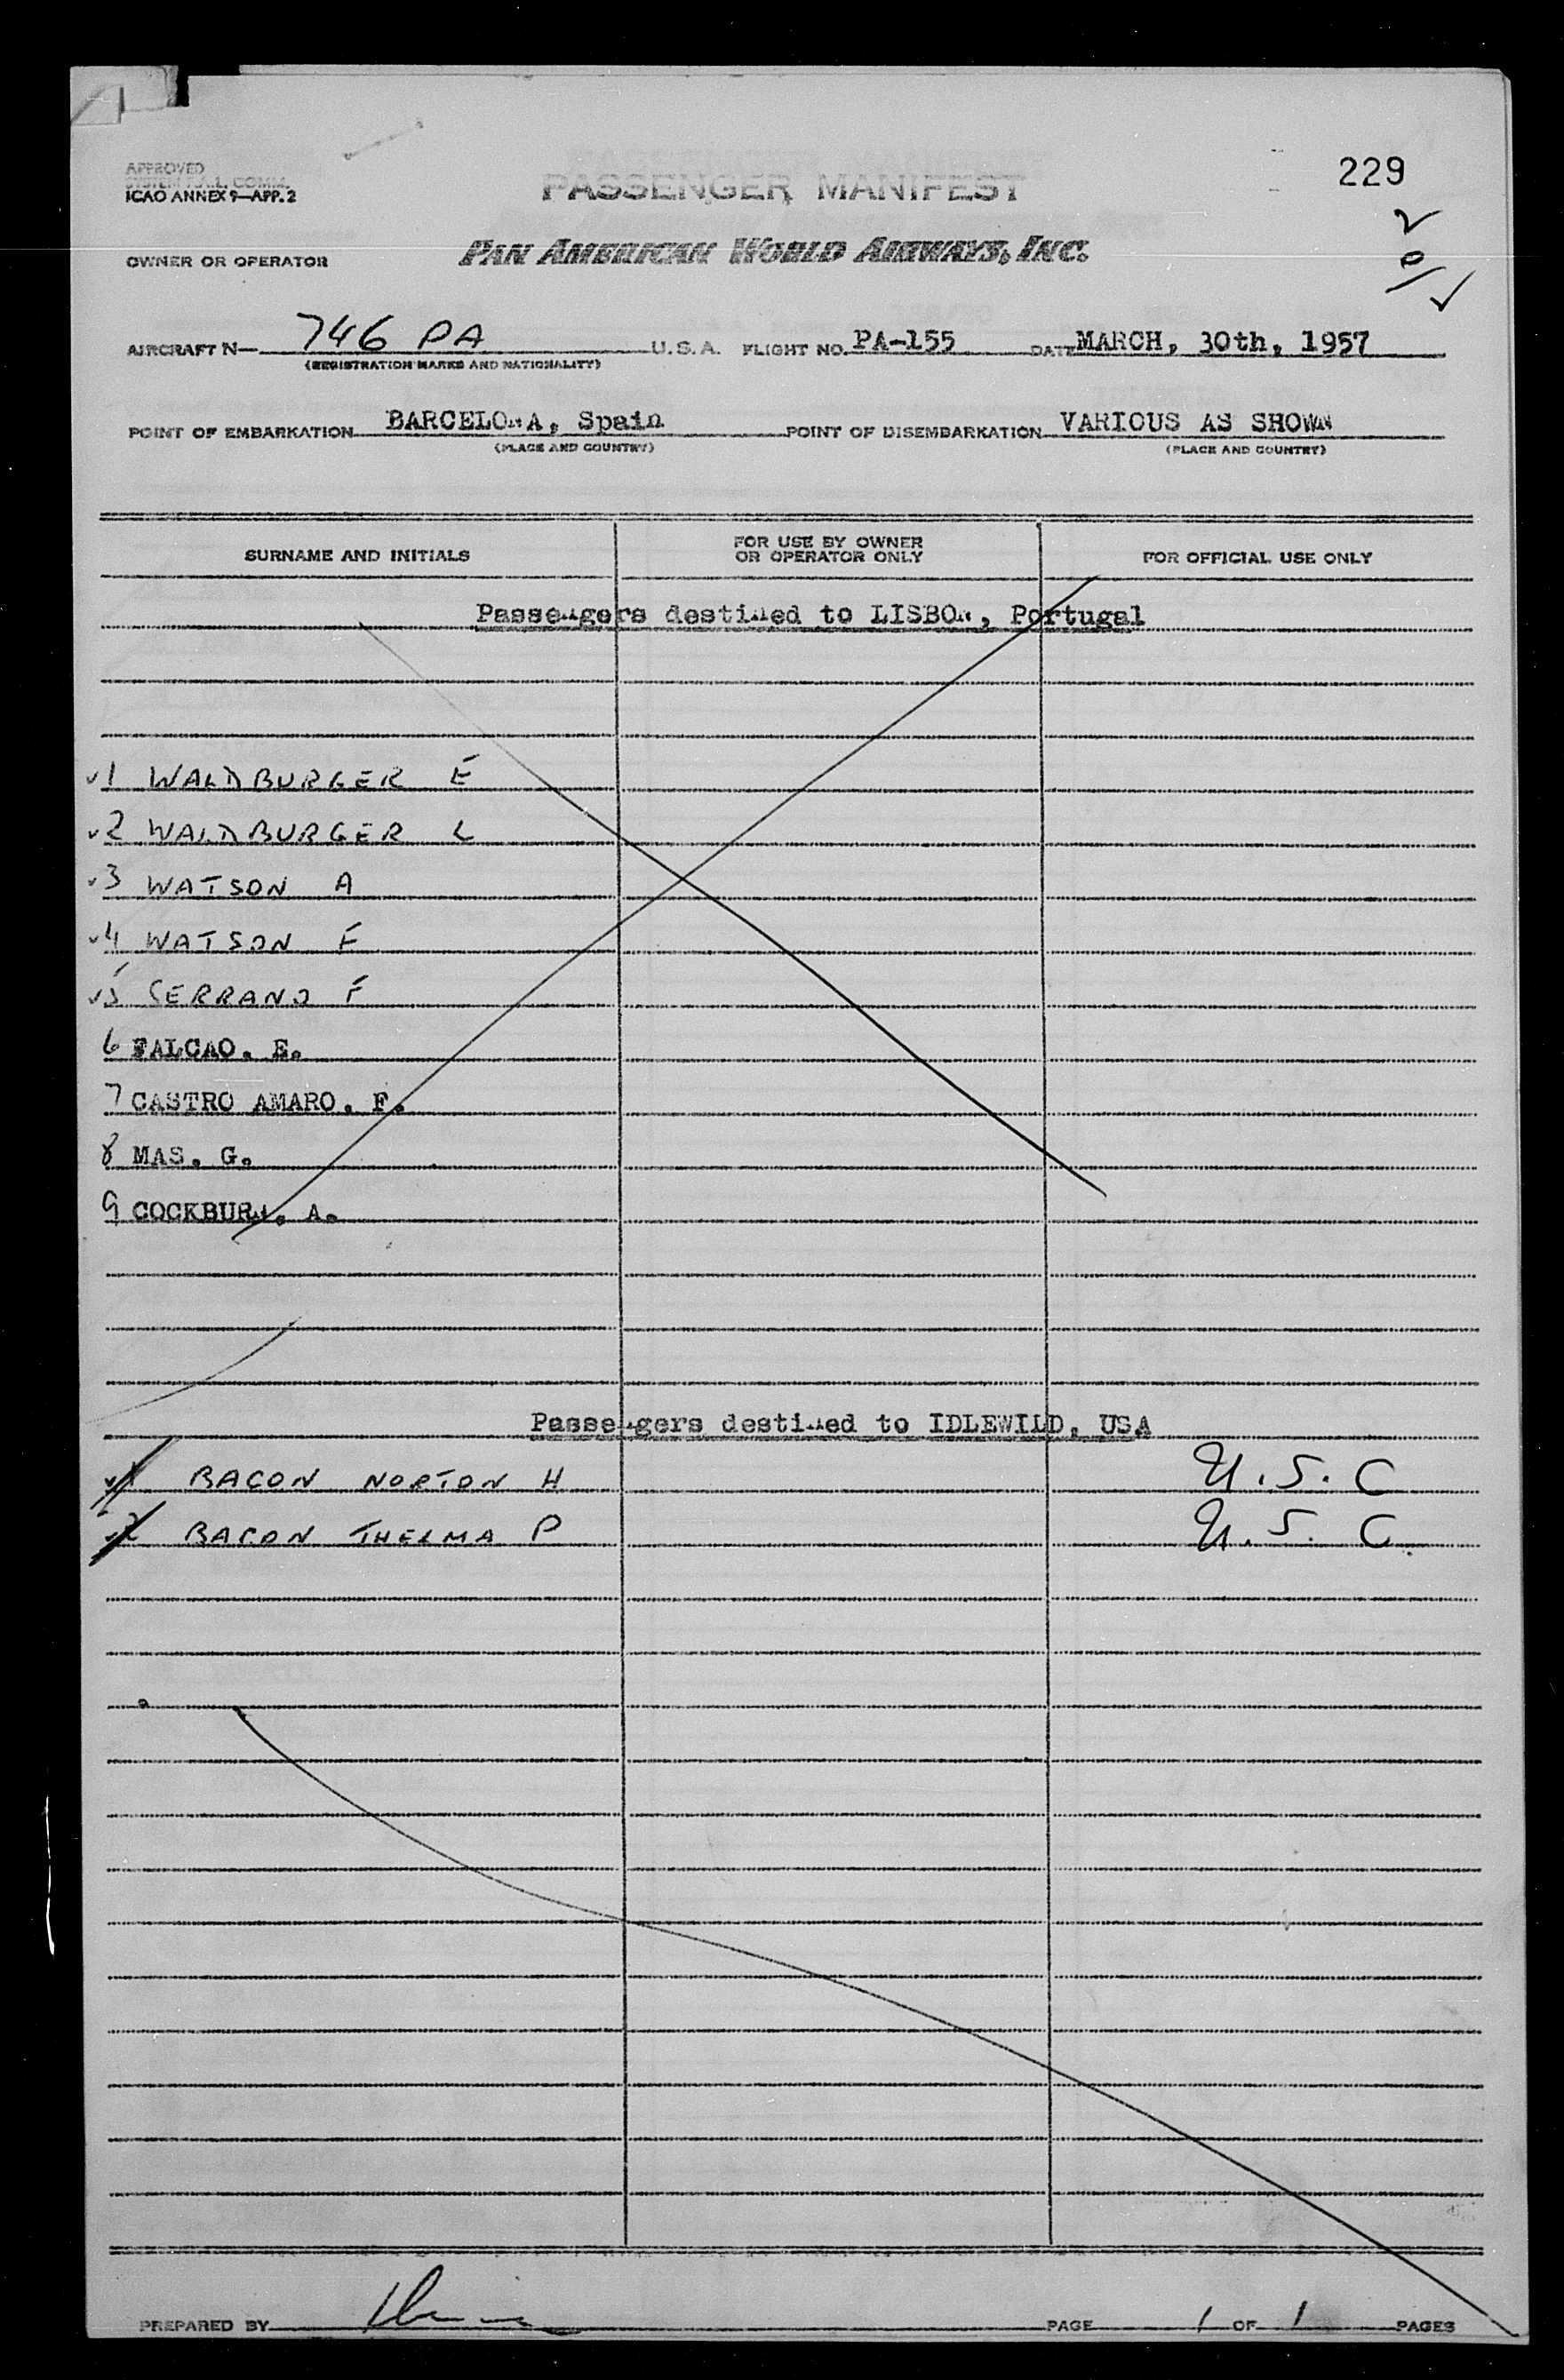 229
APPROVED
SYSTEM F.A.L. COMM.
ICAO ANNEX 9—APP. 2
PASSENGER MANIFEST
OWNER OR OPERATOR PAN AMERICAN WORLD AIRWAYS, INC.
2
0/ ✓
AIRCRAFT N— 746 PA U.S.A. FLIGHT NO. PA-155 DATE MARCH, 30th, 1957
(REGISTRATION MARKS AND NATIONALITY)
POINT OF EMBARKATION BARCELONA, Spain POINT OF DISEMBARKATION VARIOUS AS SHOWN
(PLACE AND COUNTRY) (PLACE AND COUNTRY)
SURNAME AND INITIALS FOR USE BY OWNER OR OPERATOR ONLY FOR OFFICIAL USE ONLY
Passengers destined to LISBON, Portugal
✓1 WALDBURGER E
✓2 WALDBURGER L
✓3 WATSON A
✓4 WATSON F
✓5 SERRANO F
6 FALCAO. E.
7 CASTRO AMARO. F.
8 MAS. G.
9 COCKBURN. A.
Passengers destined to IDLEWILD, USA
✓1 BACON NORTON H U.S.C
✓2 BACON THELMA P U.S.C.
PREPARED BY PAGE 1 OF 1 PAGES